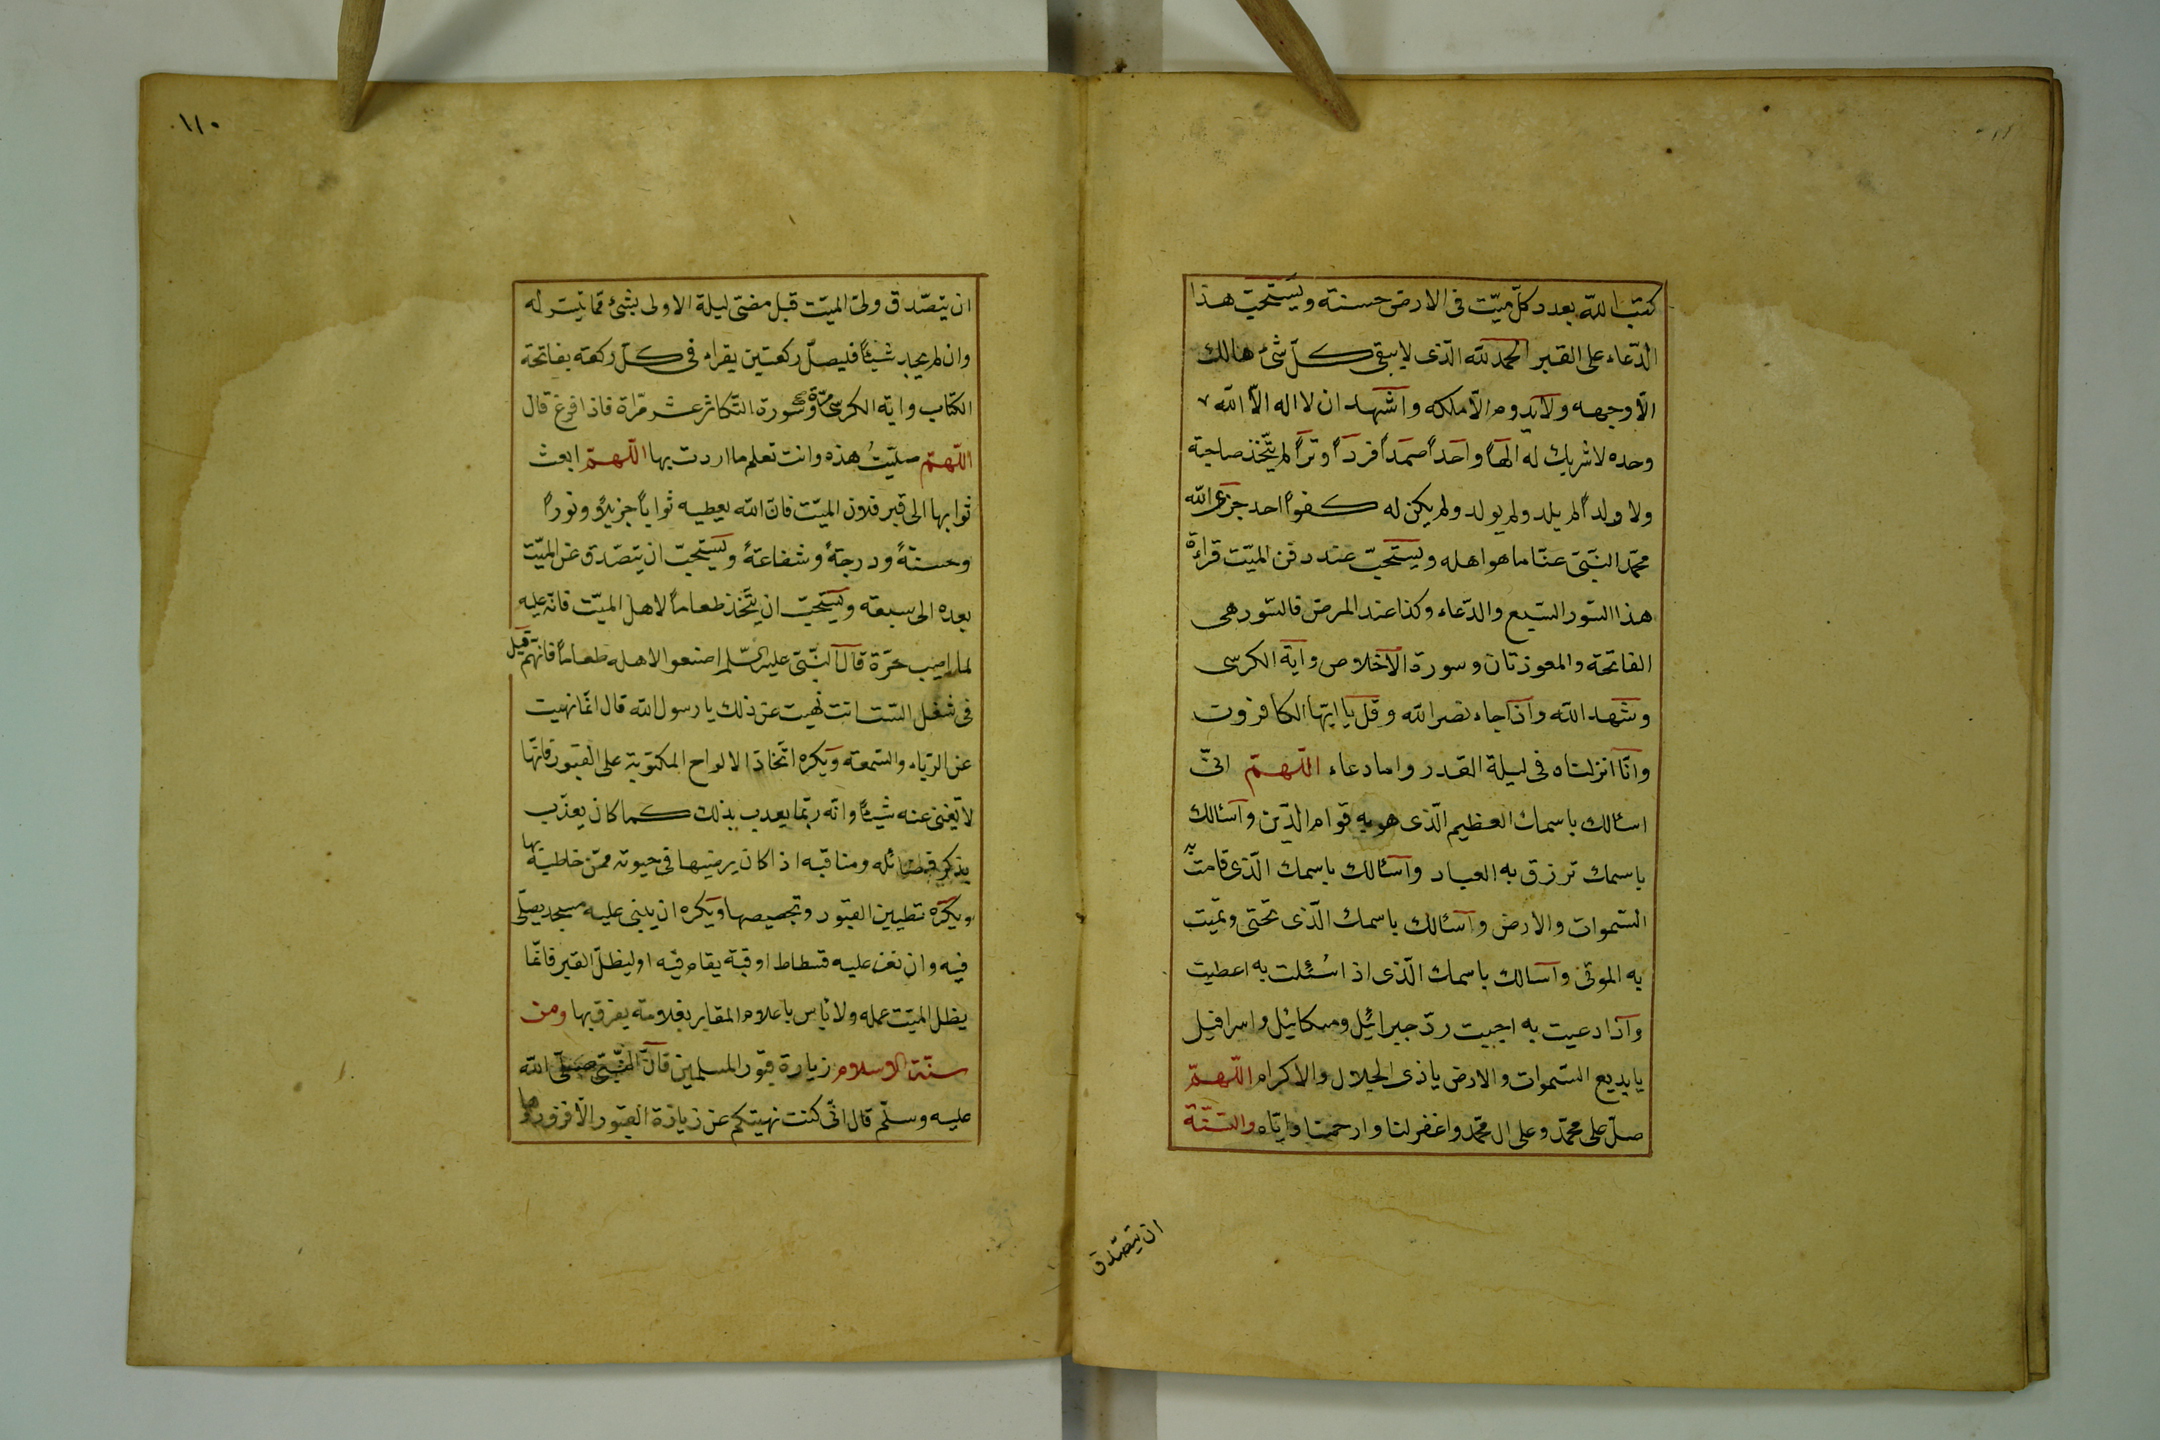 كتب الله بعدد كلّ ميّت فى الارض حسنة ويستحبّ هذا
الدّعاء على القبر الحمد لله الّذى لا يبقى كلّ شئ هالك
الّا وجهه ولا يدوم الّا ملكه واشهد ان لا اله الّا الله
وحده لا شريك له الهاً واحداً صمداً فرداً وتراً لم يتّخذ صاحبة
ولا ولداً لم يلد ولم يولد ولم يكن له كفواً احد جزى الله
محمّد النّبىّ عنّا ما هو اهله ويستحبّ عند دفن الميّت قراءة
هذا السّور السّبع والدّعاء وكذا عند المرض فالسّور هى
الفاتحة والمعوذتان وسورة الاخلاص واية الكرسى
وشهد الله واذا جاء نصر الله وقل يا ايّها الكافرون
وانّا انزلناه فى ليلة القدر واما دعاء اللّهمّ انّى
اسئالك باسمك العظيم الّذى هو به قوام الدّين واسئالك
باسمك ترزق به العباد واسئالك باسمك الّذى قامت به
السّموات والارض واسئالك باسمك الّذى تحيى وتميت
به الموتى واسالك باسمك الّذى اذ اسُئلت به اعطيت
واذا دعيت به اجبت ربّ جبرائيل وميكائيل واسرافيل
يا بديع السّموات والارض يا ذى الجلال والاكرام اللّهمّ
صلّ على محمّد وعلى ال محمّد واغفر لنا وارحمنا وايّاه والسّنّة
ان يتصّدق
١١٠
ان يتصّدق ولىّ الميّت قبل مضىّ ليلة الاولى بشئ ممّا تيسّر له
وان لم يجد شيئاً فليصلّ ركعتين يقراء فى كلّ ركعة بفاتحة
الكتاب واية الكرسى مرّة وسورة التّكاثر عشر مرّاة فاذا فرغ قال
اللّهمّ صلّيتُ هذه وانت تعلم ما اردت بها اللّهمّ ابعث
ثوابها الى قبر فلان الميّت فانّ الله يعطيه ثواباً جزيلاً ونوراً
وحسنةً ودرجةً وشفاعةً ويستحبّ ان يتصّدق عن الميّت
بعده الى سبعة ويستحبّ ان يتّخذ طعاماً لاهل الميّت فانّه عليه
لما اصيب حمزة قال النّبىّ عليه السّلم اصنعوا لاهله طعاماً فانّهم قيل
فى شغل الست انت نهيت عن ذلك يا رسول الله قال انّما نهيت
عن الرّياء والسّمعة ويكره اتّخاذ الالواح المكتوبة على القبور فانّها
لا تغنى عنه شيئاً وانّه ربّما يعذب بذلك كما كان يعذّب
بذكر فضائله ومناقبه اذا كان يرضيها فى حيوته ممّن خلطيه بها
ويكره تطيين القبور وتجصيصها ويكره ان يبنى عليه مسجد يصلّى
فيه وان عليه فسطاط او قبّة يقام فيه او ليظلّ القبر فانّما
يظل الميّت عمله ولا باس باعلام المقابر بعلامة يعرف بها ومن
سنّة الاسلام زيارة قبور المسلمين فانّ النّبىّ صلّى الله
عليه وسلّم قال انّى كنت نهيتكم عن زيارة القبور الّا فزوروها